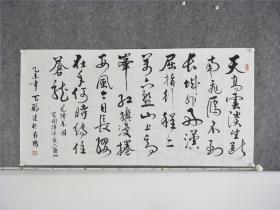 天高雲淡望斷
南飛雁不到
長城非好漢
屈指行程二
萬六盤山上高
峰紅旗漫捲
西風今日長纓
在手何時縛住
蒼龍
乙未年